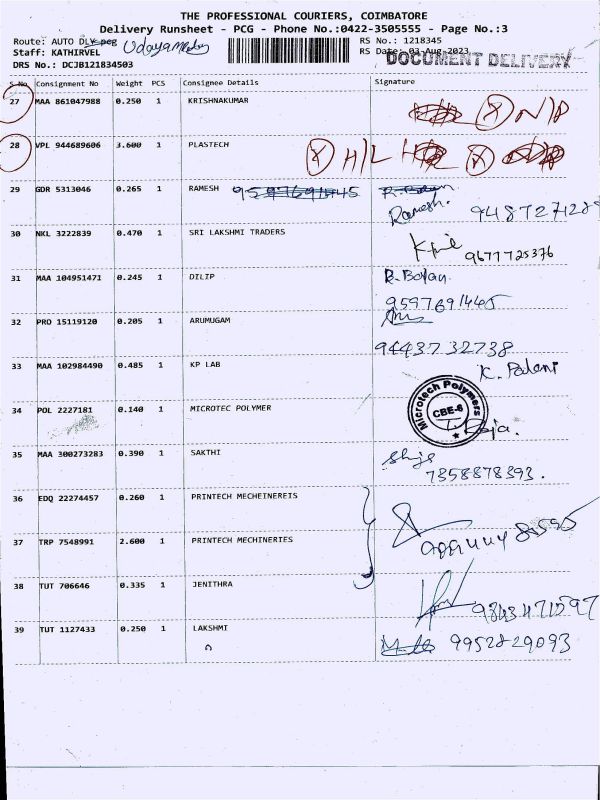 THE PROFESSIONAL COURIERS, COIMBATORE
Delivery Runsheet - PCG - Phone No.:0422-3505555 - Page No.:3
Route: AUTO DLY
RS No.: 1218345
Staff: KATHIRVEL
RS Date: 03-Aug-2023
DOCUMENT DELIVERY
DRS No.: DCJB121834503
S.No. Consignment No Weight PCS Consignee Details Signature
27 MAA 861047988 0.250 1 KRISHNAKUMAR
N/P
28 VPL 944689606 3.600 1 PLASTECH
H/L
29 GDR 5313046 0.265 1 RAMESH
Ramesh.
30 NKL 3222839 0.470 1 SRI LAKSHMI TRADERS
9677725376
31 MAA 104951471 0.245 1 DILIP
R. Boyan
9597691445
32 PRO 15119120 0.205 1 ARUMUGAM
9443732738
33 MAA 102984490 0.485 1 KP LAB
K. Palani
34 POL 2227181 0.140 1 MICROTEC POLYMER
Microtech Polymers
CBE-6
T. Raja.
35 MAA 300273283 0.390 1 SAKTHI
7358878393.
36 EDQ 22274457 0.260 1 PRINTECH MECHEINEREIS
37 TRP 7548991 2.600 1 PRINTECH MECHINERIES
38 TUT 706646 0.335 1 JENITHRA
9843471597
39 TUT 1127433 0.250 1 LAKSHMI
9952829093